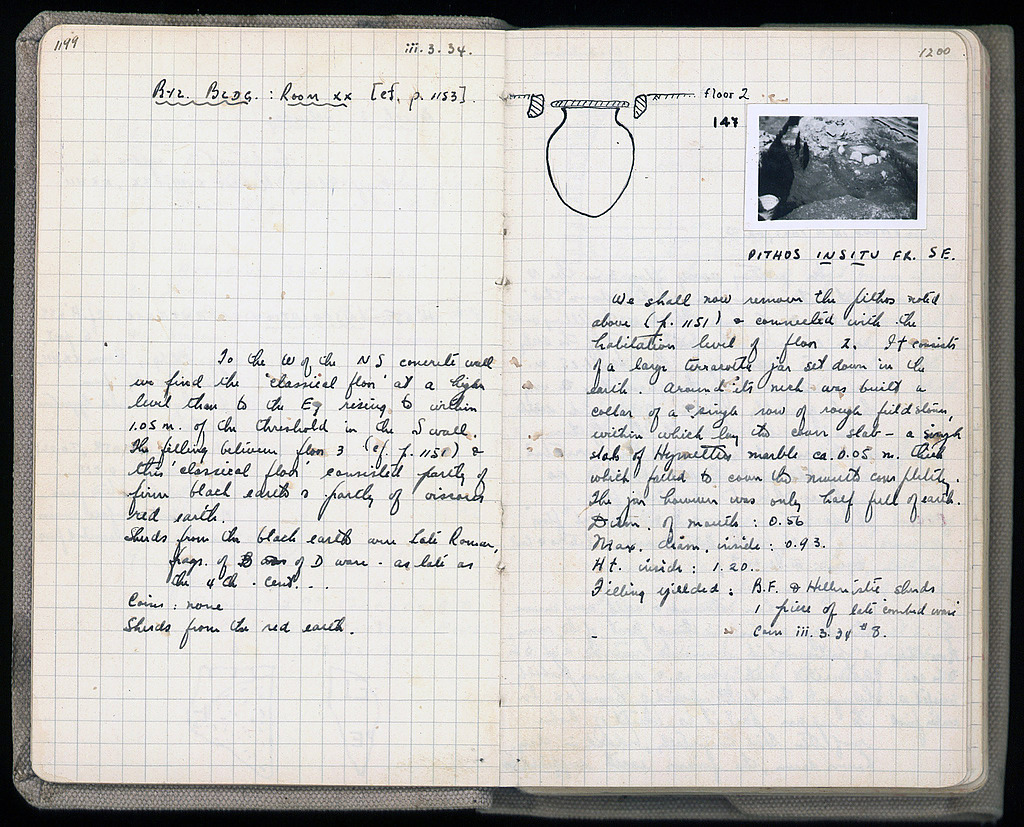 1199
iii.3.34.
Byz. Bldg. : Room xx [cf. p. 1153].
To the W of the NS concrete wall
we find the 'classical floor' at a higher
level than to the E, rising to within
1.05 m. of the threshold in the S wall.
The filling between floor 3 (cf. p. 1151) &
this 'classical floor' consisted partly of
firm black earth & partly of viscous
red earth.
Sherds from the black earth were Late Roman,
frags. of of D ware - as late as
the 4th. cent...
Coins : none
Sherds from the red earth.
1200
floor 2
147
PITHOS IN SITU FR. SE.
We shall now remove the pithos noted
above (p. 1151) & connected with the
habitation level of floor 2. It consists
of a large terracotta jar set down in the
earth. Around its neck was built a
collar of a single row of rough field stones,
within which lay the cover slab - a single
slab of Hymettus marble ca. 0.05 m. thick
which failed to cover the mouth completely.
The jar however was only half full of earth.
Diam. of mouth : 0.56
Max. diam. inside : 0.93.
Ht. inside : 1.20.
Filling yielded : B.F. & Hellenistic sherds
1 piece of late combed ware
- Coin iii.3.34 #8.